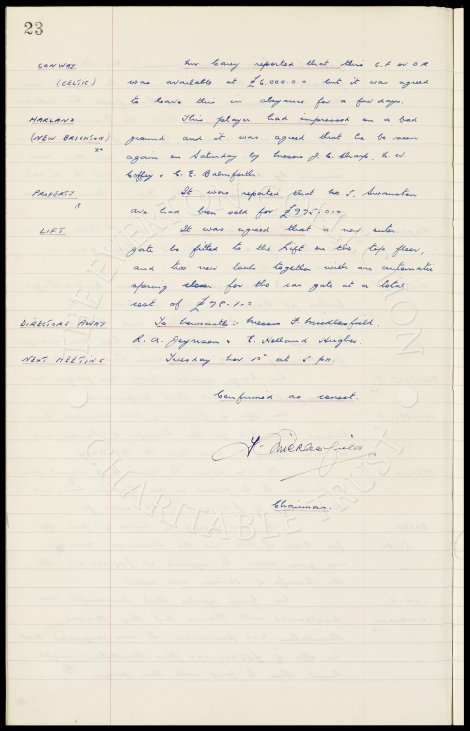 23
CONWAY Mr Carey reported that this C.F or O.R
(CELTIC) was available at £6,000.0.0 but it was agreed
to leave this in abeyance for a few days.
HARLAND This player had impressed on a bad
(NEW BRIGHTON) ground and it was agreed that he be seen
again on Saturday by Messrs J. C. Sharp, C. W.
Coffey & C. E. Balmforth.
PROPERTY It was reported that No 5. Swanston
Ave had been sold for £975.0.0
LIFT It was agreed that a new outer
gate be fitted to the Lift on the top floor,
and two new locks together with an automatic
spring closer for the car gate at a total
cost of £78.1.0
DIRECTORS AWAY To Newcastle: Messrs F. Micklesfield.
R. A. Joynson & E. Holland Hughes.
NEXT MEETING Tuesday Nov at 5 pm.
Confirmed as correct.
F. Micklesfield
Chairman.
THE EVERTON COLLECTION
CHARITABLE TRUST